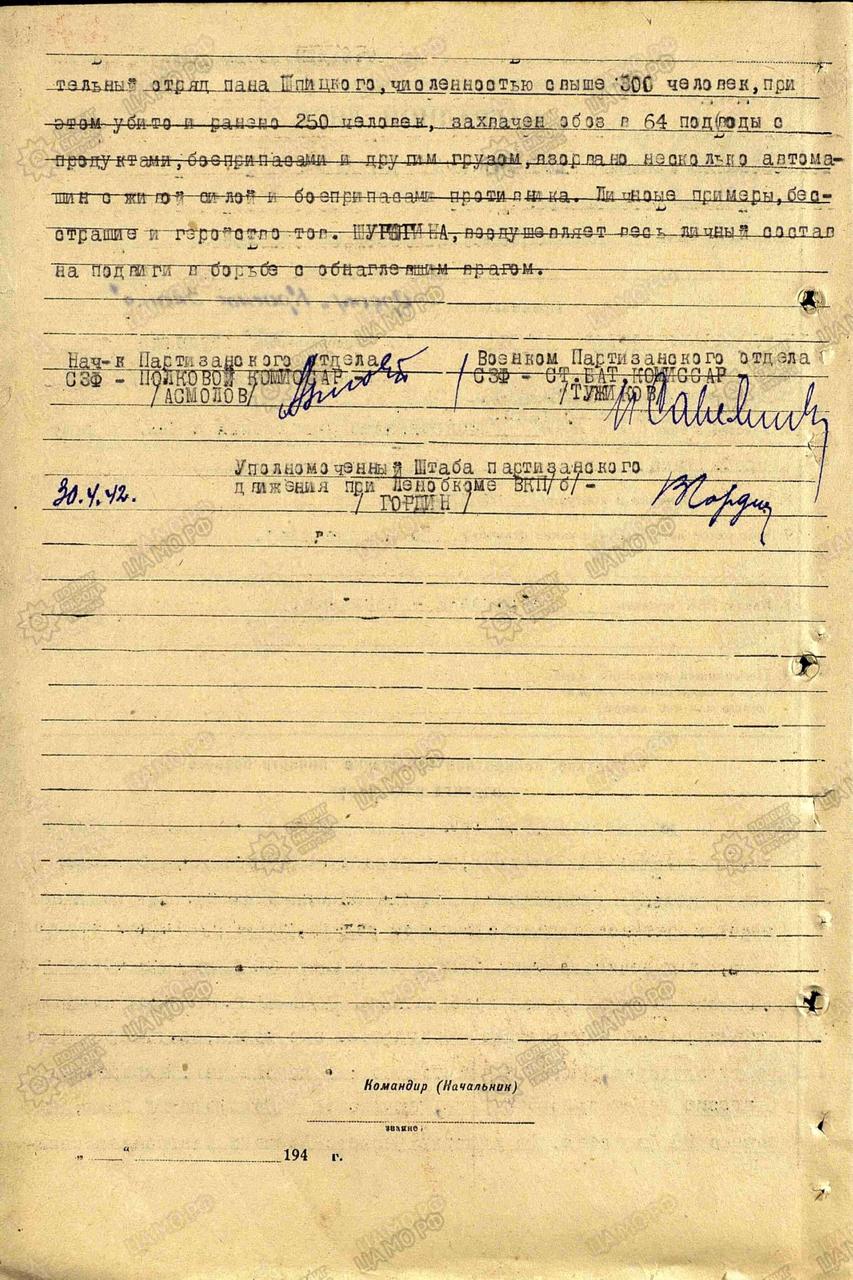 тельный отряд пана Шпицкого,численностью свыше 300 человек,при
этом убито и ранено 250 человек, захвачен обоз в 64 подводы с
продуктами,боеприпасами и другим грузом,взорвано несколько автома-
шин с живой силой и боеприпасами противника. Личные примеры,бес-
страшие и геройство тов. ШУРЫГИНА,воодушевляет весь личный состав
на подвиги в борьбе с обнаглевшим врагом.
Нач-к Партизанского отдела
СЗФ - ПОЛКОВОЙ КОМИССАР -
/АСМОЛОВ/
Военком Партизанского отдела
СЗФ - СТ.БАТ.КОМИССАР -
/ТУЖИКОВ/
Уполномоченный Штаба партизанского
движения при Ленобкоме ВКП/б/ -
/ ГОРДИН /
30.4.42.
Командир (Начальник)
звание
„ “ 194 г.
ПОДВИГ НАРОДА
ЦАМО РФ